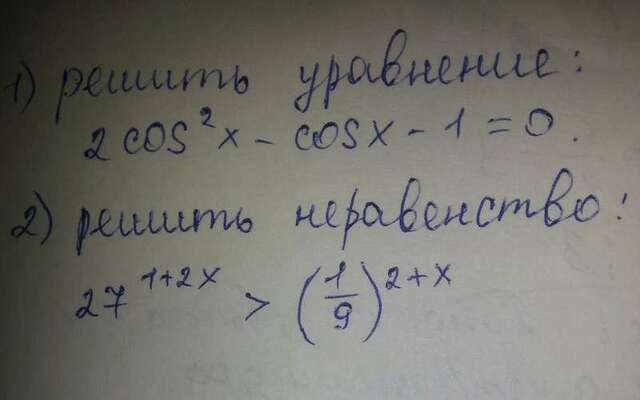 1) решить уравнение:
2 cos²x - cosx - 1 = 0.
2) решить неравенство:
27^(1+2x) > (1/9)^(2+x)